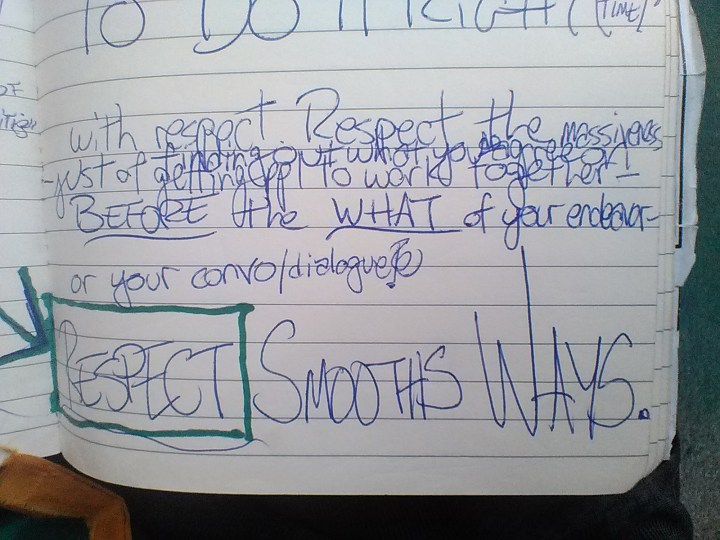 TO DO IT RIGHT (TIME)
with respect. Respect the massiveness
finding out what you agree on!
-just of getting ppl to work together!-
BEFORE the WHAT of your endeavor-
or your convo/dialogue
RESPECT SMOOTHS WAYS.